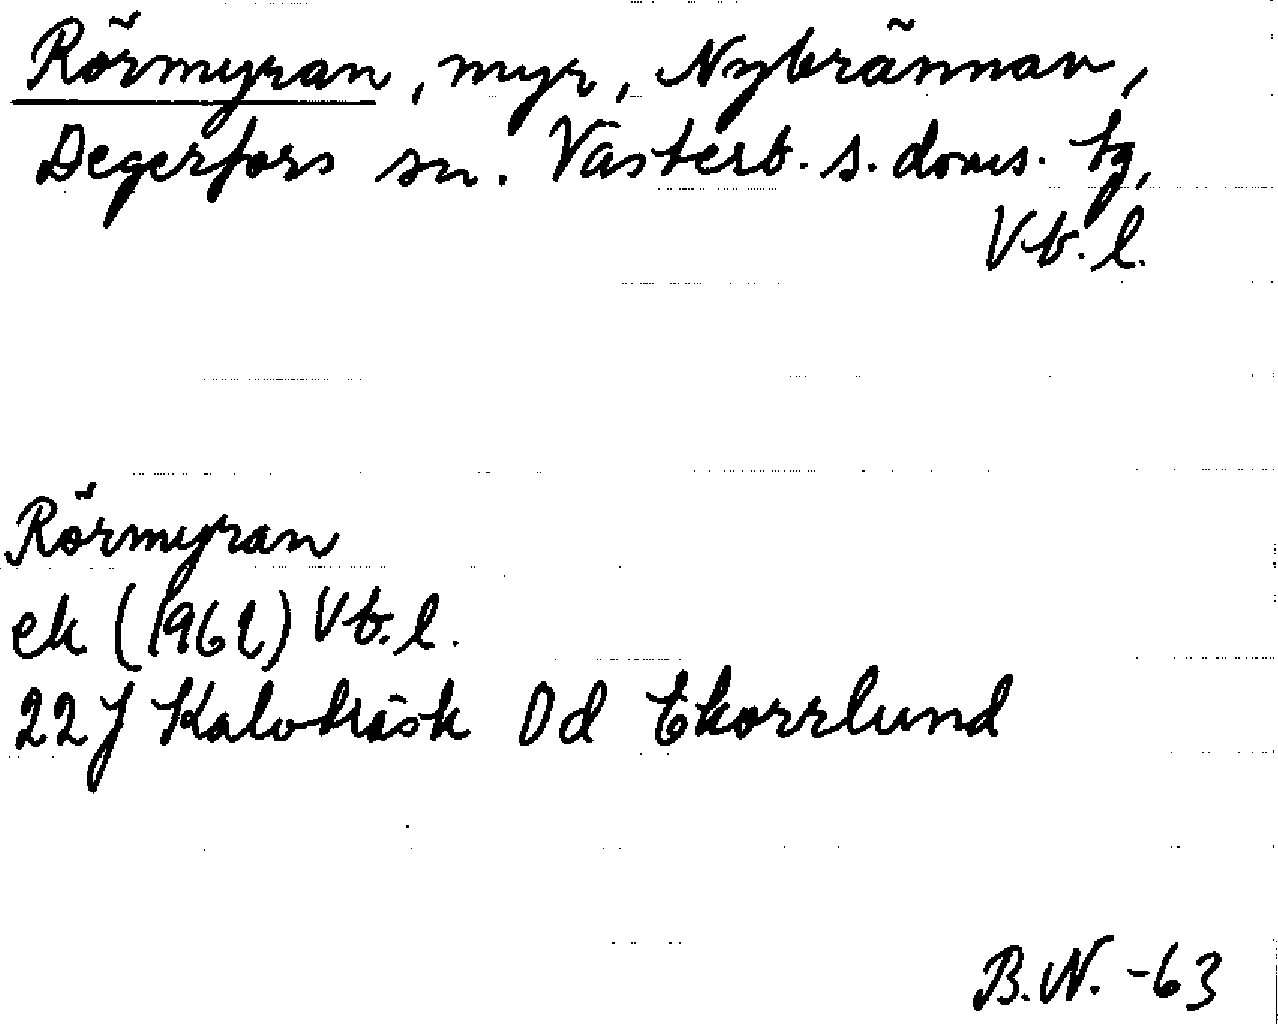 Rörmyran, myr, Nybrännan,
Degerfors sn. Västerb. s. doms. tg,
Vb. l.
Rörmyran
ek (1962) Vb. l.
22 J Kalvträsk 0d Ekorrlund
B.N. -63